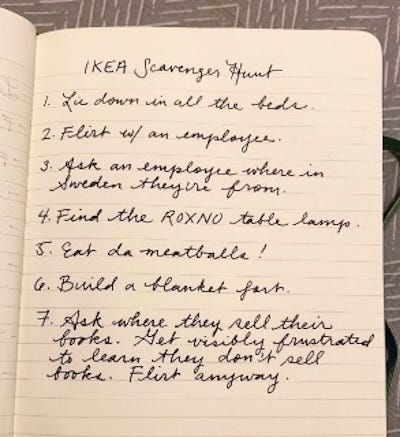 IKEA Scavenger Hunt
1. Lie down in all the beds.
2. Flirt w/ an employee.
3. Ask an employee where in
Sweden they're from.
4. Find the ROXNO table lamp.
5. Eat da meatballs!
6. Build a blanket fort.
7. Ask where they sell their
books. Get visibly frustrated
to learn they don't sell
books. Flirt anyway.